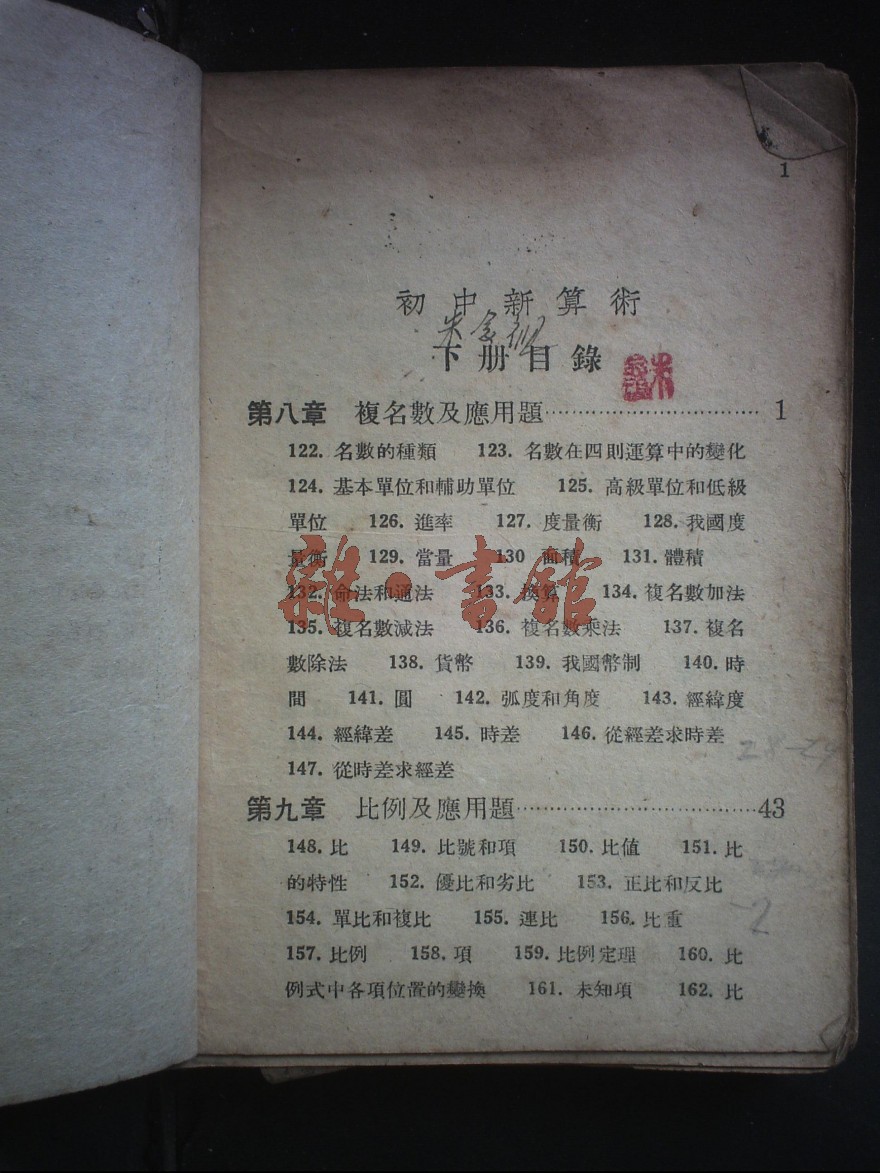 1
初中新算術
朱
下册目錄
第八章 複名數及應用題 1
122. 名數的種類 123. 名數在四則運算中的變化
124. 基本單位和輔助單位 125. 高級單位和低級
單位 126. 進率 127. 度量衡 128. 我國度
量衡 129. 當量 130 面積 131. 體積
132. 命法和通法 133. 換算 134. 複名數加法
雜·書館
135. 複名數減法 136. 複名數乘法 137. 複名
數除法 138. 貨幣 139. 我國幣制 140. 時
間 141. 圓 142. 弧度和角度 143. 經緯度
144. 經緯差 145. 時差 146. 從經差求時差
147. 從時差求經差
第九章 比例及應用題 43
148. 比 149. 比號和項 150. 比值 151. 比
的特性 152. 優比和劣比 153. 正比和反比
154. 單比和複比 155. 連比 156. 比重
-2
157. 比例 158. 項 159. 比例定理 160. 比
例式中各項位置的變換 161. 未知項 162. 比